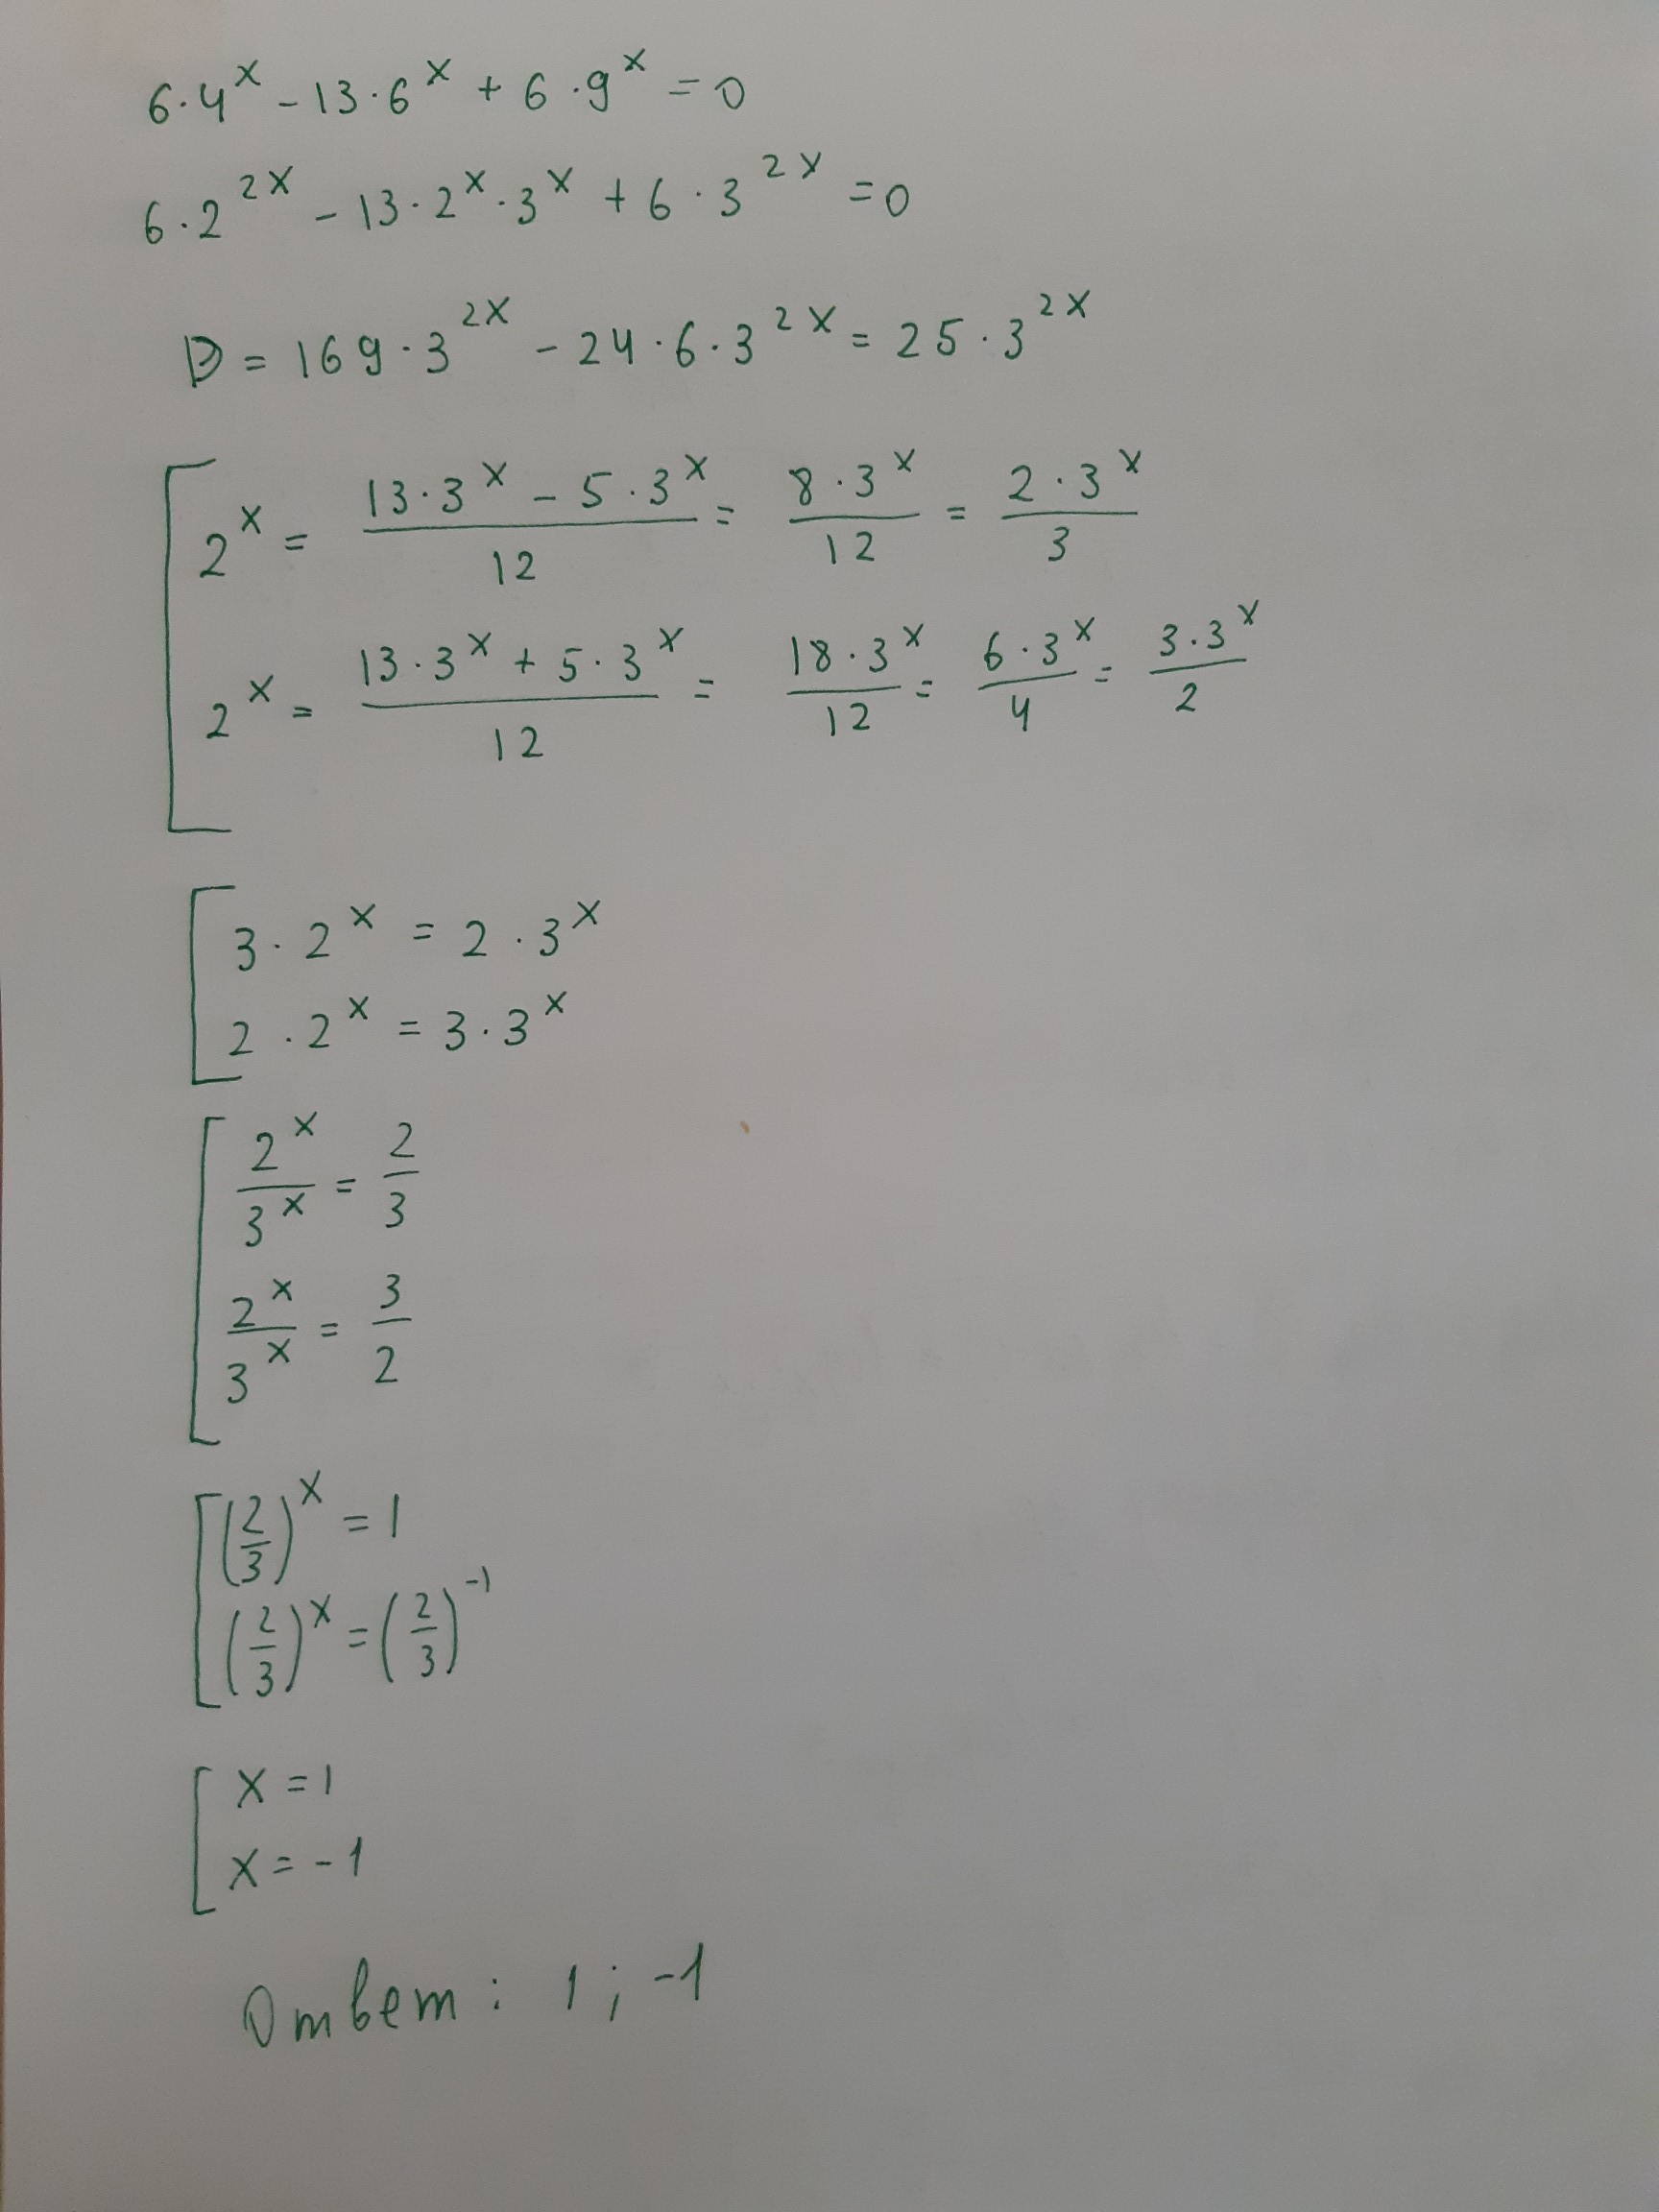 6·4^x - 13·6^x + 6·9^x = 0
6·2^2x - 13·2^x·3^x + 6·3^2x = 0
D = 169·3^2x - 24·6·3^2x = 25·3^2x
2^x = (13·3^x - 5·3^x)/12 = (8·3^x)/12 = (2·3^x)/3
2^x = (13·3^x + 5·3^x)/12 = (18·3^x)/12 = (6·3^x)/4 = (3·3^x)/2
3·2^x = 2·3^x
2·2^x = 3·3^x
2^x/3^x = 2/3
2^x/3^x = 3/2
(2/3)^x = 1
(2/3)^x = (2/3)^-1
x = 1
x = -1
Ответ: 1; -1